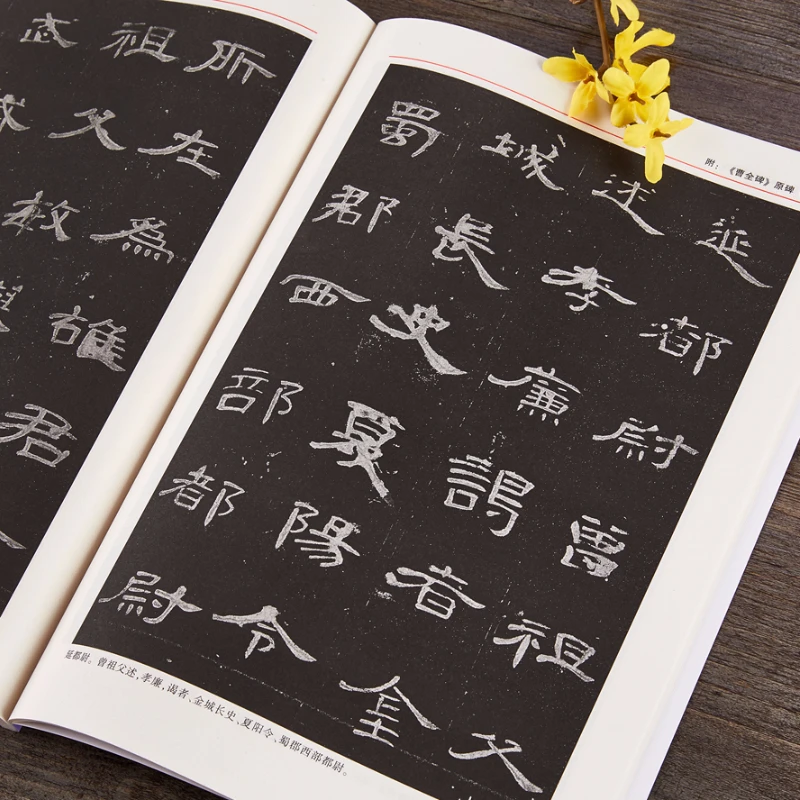 所在為雄君
祖父敏
武
附：《曹全碑》原碑
延都尉曾祖父
述孝廉謁者金
城長史夏陽令
蜀郡西部都尉
延都尉。曾祖父述，孝廉，谒者、金城长史、夏阳令、蜀郡西部都尉。